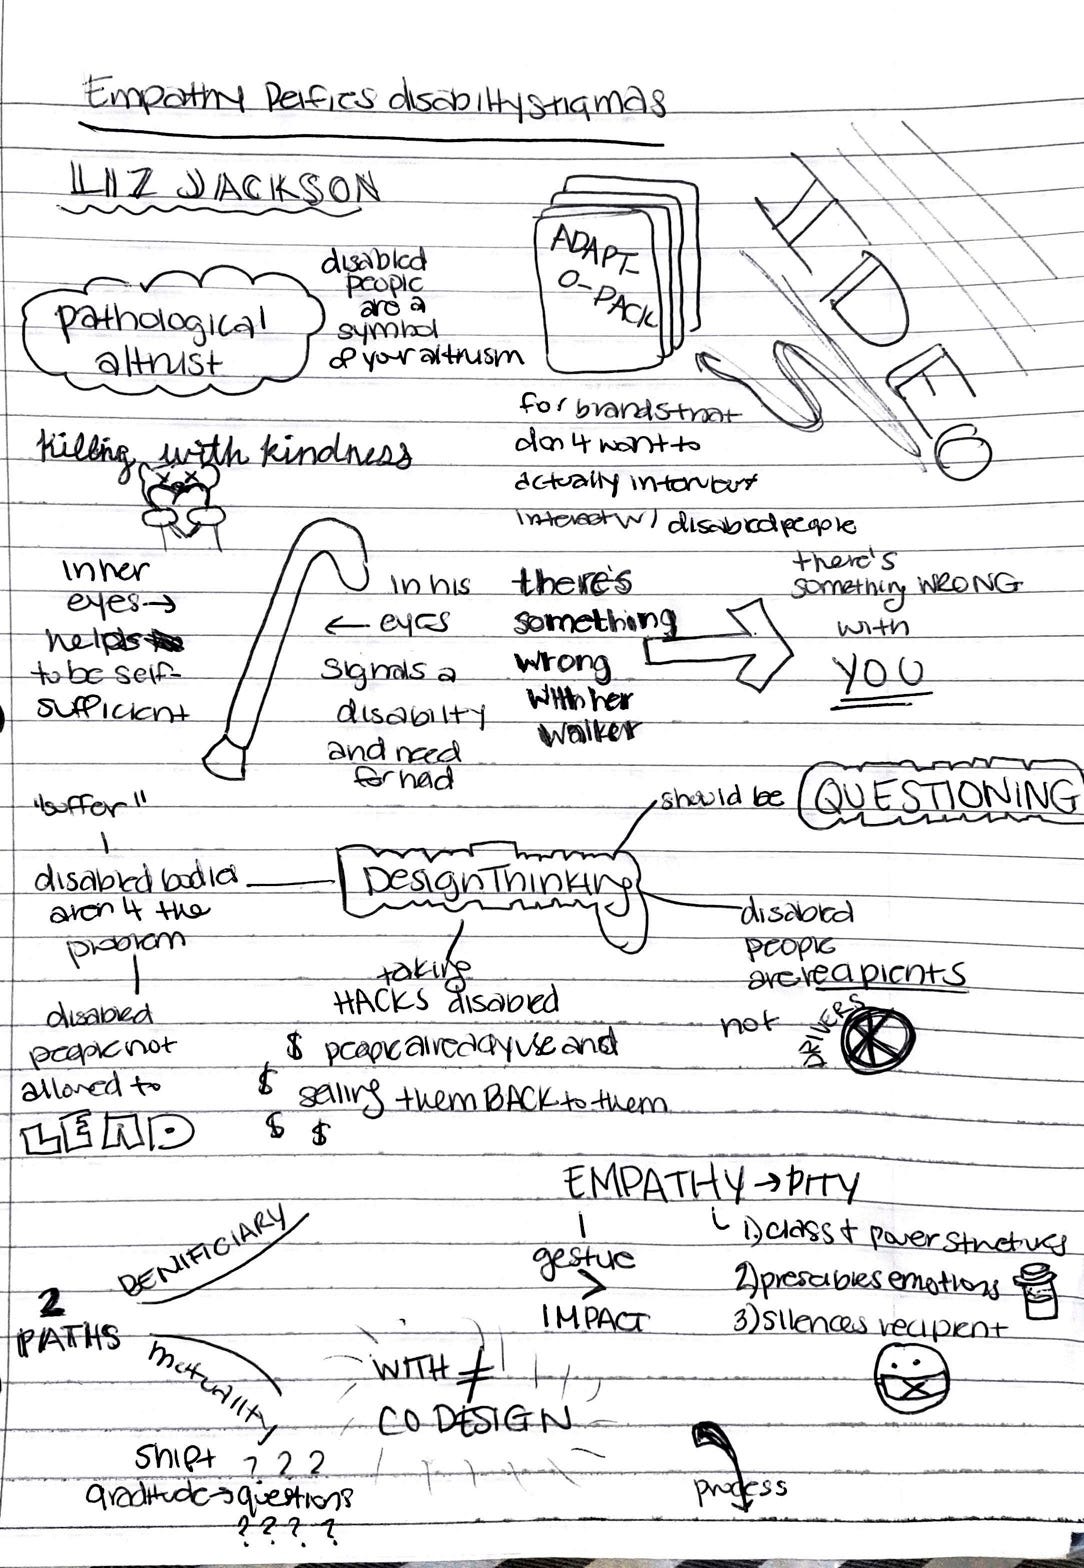 Empathy Reifies disability stigmas
LIZ JACKSON
disabled
people
are a
symbol
of your altruism
pathological
altrust
ADAPT-
O-PACK
HIDE
for brands that
don't want to
actually
interest w/ disabled people
killing with kindness
In her
eyes →
helps
to be self-
sufficient
in his
← eyes
signals a
disabilty
and need
for hed
there's
something
wrong
with her
walker
there's
something WRONG
with
YOU
"suffer"
should be QUESTIONING
Design Thinking
disabled bodies
aren't the
problem
disabled
people not
allowed to
LEAD
taking
HACKS disabled
$ people already use and
$ selling them BACK to them
$ $
disabled
people
are recipients
not DRIVERS
EMPATHY → PITY
gestue
>
IMPACT
1) class + power structures
2) prescribes emotions
3) silences recipient
2
PATHS
BENIFICIARY
mutuality
WITH ≠
CO DESIGN
shift ? ? ?
graditude → questions
? ? ? ?
process